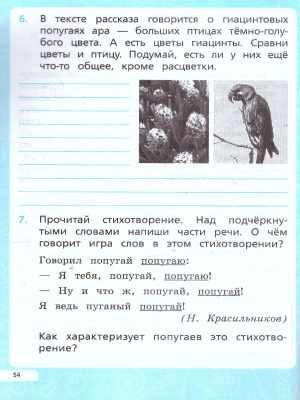 6. В тексте рассказа говорится о гиацинтовых
попугаях ара — больших птицах тёмно-голу-
бого цвета. А есть цветы гиацинты. Сравни
цветы и птицу. Подумай, есть ли у них ещё
что-то общее, кроме расцветки.
7. Прочитай стихотворение. Над подчёркну-
тыми словами напиши части речи. О чём
говорит игра слов в этом стихотворении?
Говорил попугай попугаю:
— Я тебя, попугай, попугаю!
— Ну и что ж, попугай, попугай!
Я ведь пуганый попугай!
(Н. Красильников)
Как характеризует попугаев это стихотво-
рение?
54